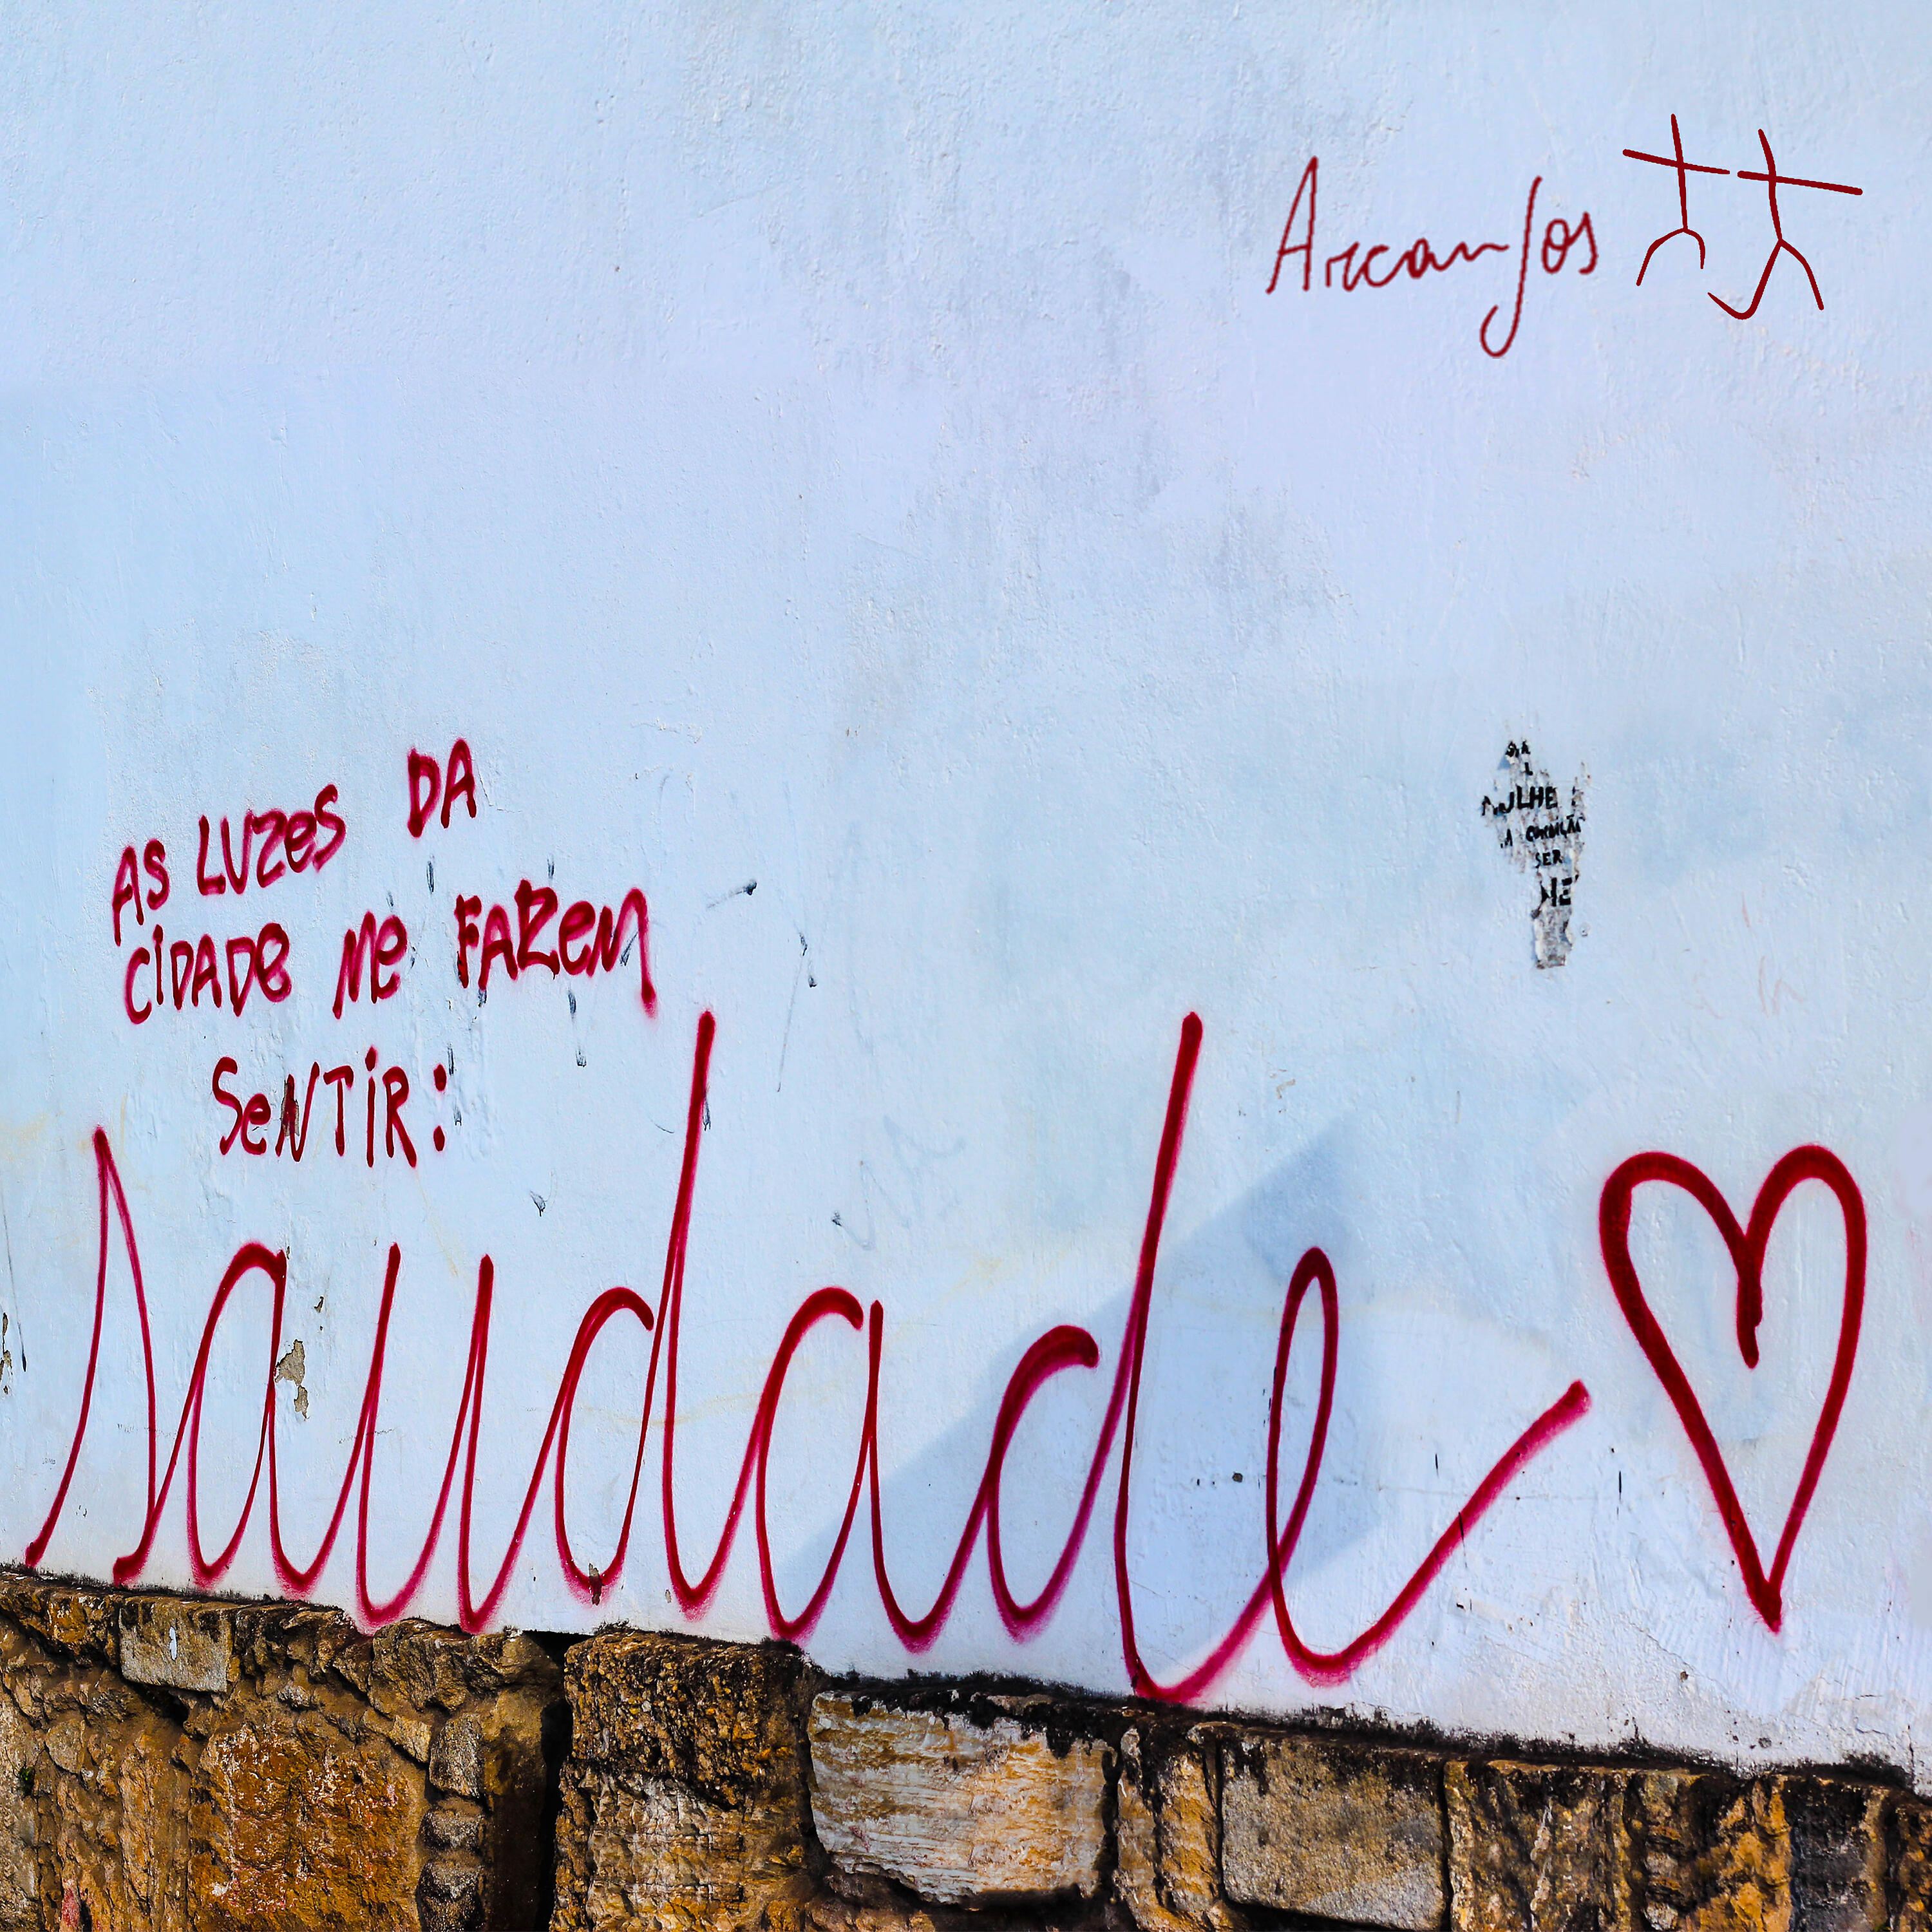 Arcanjos
AS LUZES DA
CIDADE ME FAZEM
SENTIR:
saudade
SER